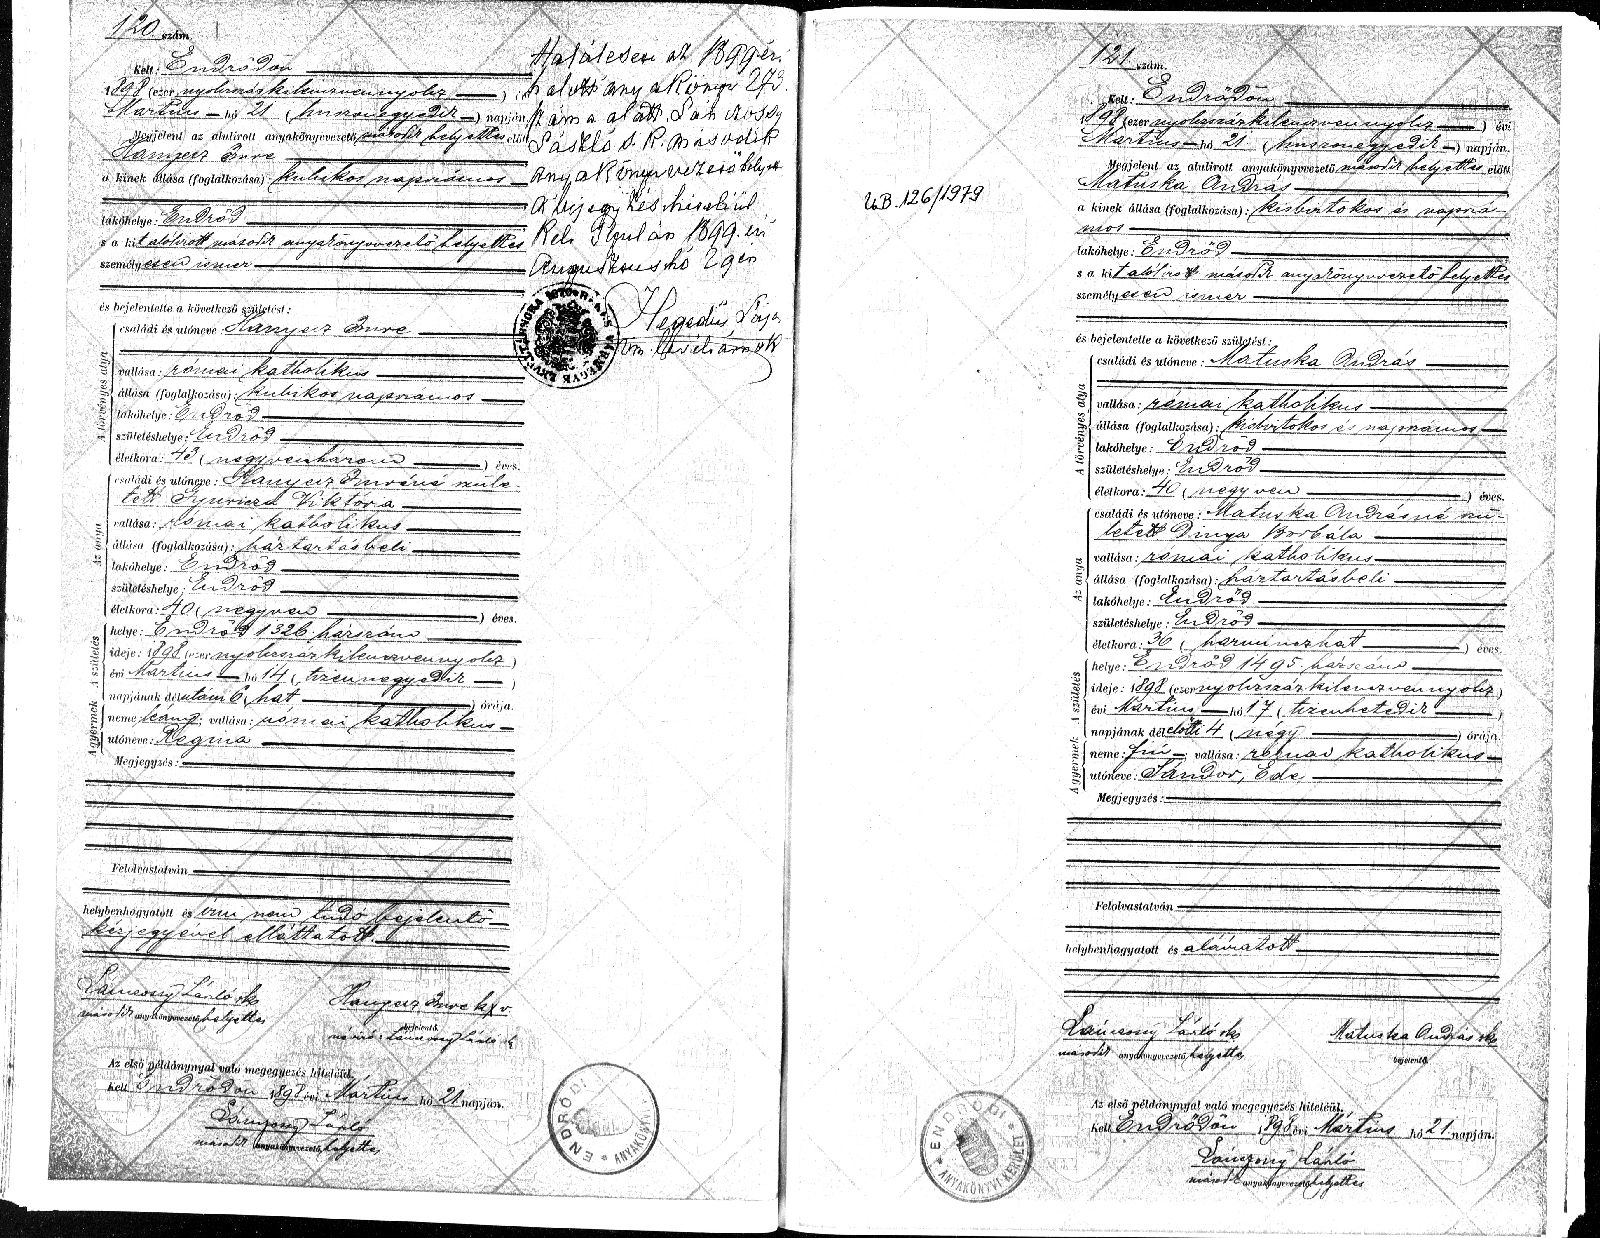 120 szám.
Kelt: Endrődön
1898 (ezer nyolczszázkilenczvennyolcz) évi
Martius hó 21 (huszonegyedik) napján.
Megjelent az alulirott anyakönyvezető második helyettes előtt
Hanyecz Imre
a kinek állása (foglalkozása): kubikos napszámos
lakóhelye: Endrőd
s a kit alólirott második anyakönyvvezető helyettes
személyesen ismer
és bejelentette a következő születést:
A törvényes atyja
családi és utóneve: Hanyecz Imre
vallása: római katholikus
állása (foglalkozása): kubikos napszámos
lakóhelye: Endrőd
születéshelye: Endrőd
életkora: 43 (negyvenhárom) éves.
Az anya
családi és utóneve: Hanyecz Imréné szüle-
tett Viktória
vallása: római katholikus
állása (foglalkozása): háztartásbeli
lakóhelye: Endrőd
születéshelye: Endrőd
életkora: 40 (negyven) éves.
A születés
helye: Endrőd 1326 házszám
ideje: 1898 (ezer nyolczszázkilenczvennyolcz)
évi Martius hó 14 (tizennegyedik)
napjának délutáni 6 (hat) órája.
A gyermek
neme: leány; vallása: római katholikus
utóneve: Regina
Megjegyzés:
Felolvastatván
helybenhagyatott és írni nem tudó bejelentő
kézjegyével elláttatott.
Lánczossy László sk
második anyakönyvvezető helyettes
Hanyecz Imre k x v
bejelentő.
névíró: Lánczossy László sk
Az első példánynyal való megegyezés hiteléül.
Kelt Endrődön 1898 évi Mártius hó 21 napján.
Lánczossy László
második anyakönyvvezető helyettes
ENDRŐDI * ANYAKÖNYVI
Halálesete az 1899 évi
halotti anyakönyv 273.
száma alatt. Lánczossy
László s. k. második
anyakönyvvezető helyett
A bejegyzés hiteléül
Kelt Gyulán 1899. évi
Augusztus hó 29 én
Hegedűs
UB. 126/1979
121 szám.
Kelt: Endrődön
1898 (ezer nyolczszázkilenczvennyolcz) évi
Martius hó 21 (huszonegyedik) napján.
Megjelent az alulirott anyakönyvezető második helyettes előtt
Matuska András
a kinek állása (foglalkozása): kisbirtokos és napszá-
mos
lakóhelye: Endrőd
s a kit alólirott második anyakönyvvezető helyettes
személyesen ismer
és bejelentette a következő születést:
A törvényes atyja
családi és utóneve: Matuska András
vallása: római katholikus
állása (foglalkozása): kisbirtokos és napszámos
lakóhelye: Endrőd
születéshelye: Endrőd
életkora: 40 (negyven) éves.
Az anya
családi és utóneve: Matuska Andrásné szü-
letett Dinya Borbála
vallása: római katholikus
állása (foglalkozása): háztartásbeli
lakóhelye: Endrőd
születéshelye: Endrőd
életkora: 36 (harminczhat) éves.
A születés
helye: Endrőd 1495 házszám
ideje: 1898 (ezer nyolczszázkilenczvennyolcz)
évi Martius hó 17 (tizenhetedik)
napjának délelőtti 4 (négy) órája.
A gyermek
neme: fiú; vallása: római katholikus
utóneve: Sándor, Ede
Megjegyzés:
Felolvastatván
helybenhagyatott és aláíratott
Lánczossy László sk
második anyakönyvvezető helyettes
Matuska András sk
bejelentő.
Az első példánynyal való megegyezés hiteléül.
Kelt Endrődön 1898 évi Mártius hó 21 napján.
Lánczossy László
második anyakönyvvezető helyettes
* ENDRŐDI * ANYAKÖNYVI KERÜLET